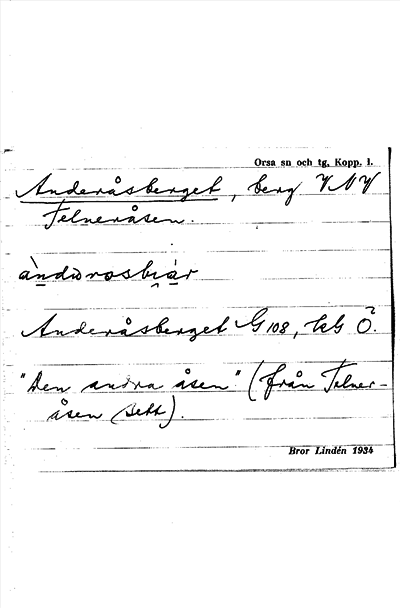 Orsa sn och tg. Kopp. l.
Anderåsberget, berg VNV
Telneråsen.
àndωrosbi̯àr
Anderåsberget G 108, kbl Ö.
"Den andra åsen" (från Telner-
åsen sett).
Bror Lindén 1934